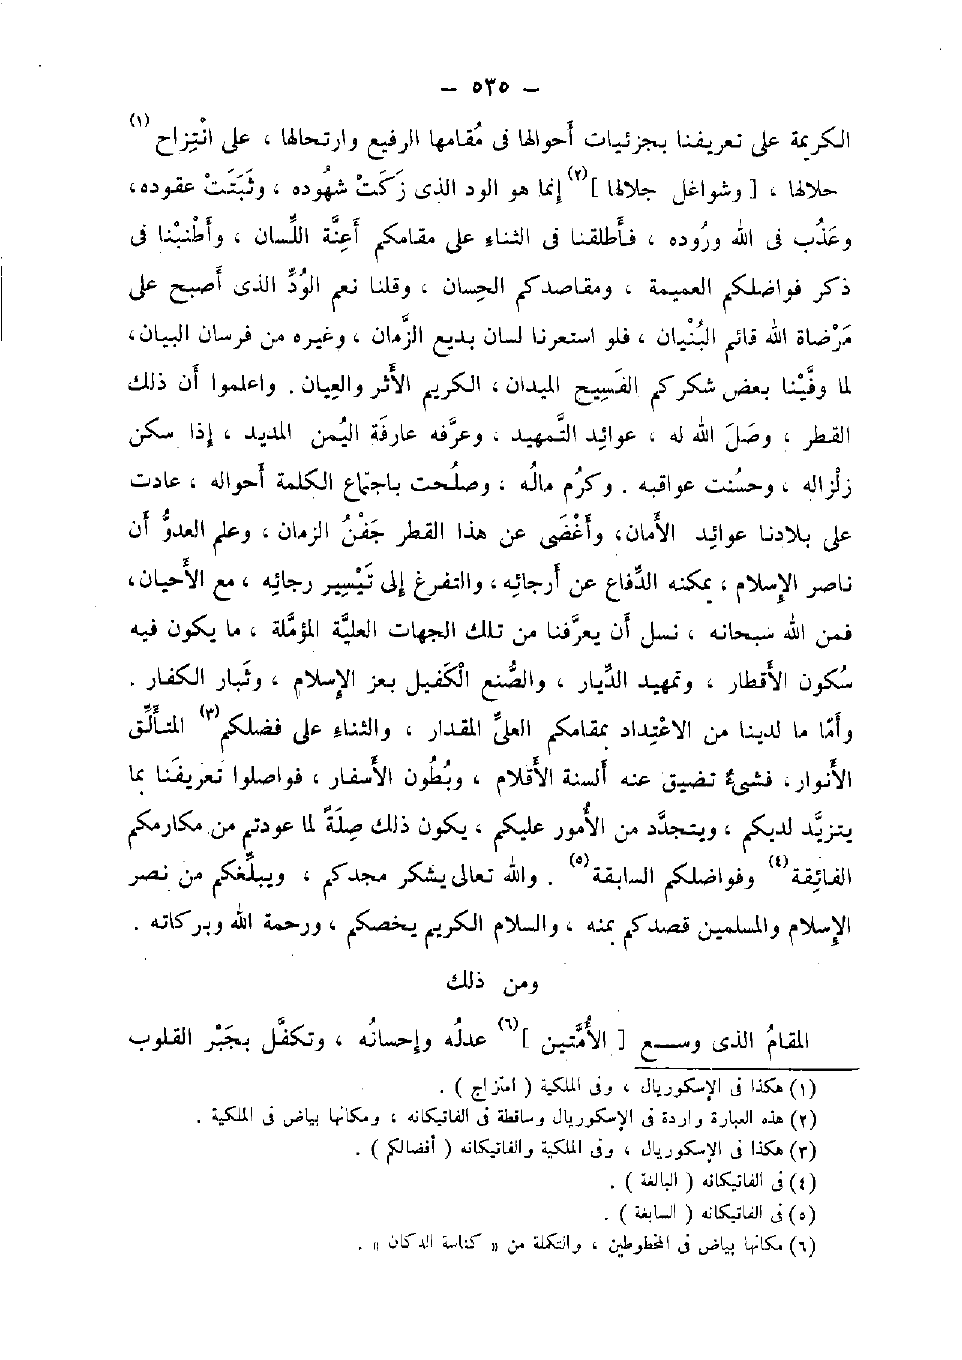 — ٥٣٥ —
الكريمة على تعريفنا بجزئيات أحوالها فى مُقامها الرفيع وارتحالها ، على انْتِزاح (١)
حلالها ، [ وشواغل جلالها ](٢) إنما هو الود الذى زَكَتْ شهُوده ، وثَبَتَتْ عقوده،
وعَذُب فى الله ورُوده ، فأَطلقنا فى الثناءِ على مقامكم أَعِنَّة اللِّسان ، وأَطْنبْنا فى
ذكر فواضلكم العميمة ، ومقاصدكم الحِسان ، وقلنا نعم الوُدُّ الذى أَصبح على
مَرْضاة الله قائم البُنْيان ، فلو استعرنا لسان بديع الزَّمان ، وغيره من فرسان البيان،
لما وفَّيْنا بعض شكركم الفَسِيح الميدان ، الكريم الأَثر والعِيان . واعلموا أَن ذلك
القطر ، وصَلَ الله له ، عوائِد التَّمهيد ، وعرَّفه عارفَة اليُمن المديد ، إِذا سكن
زلْزاله ، وحسُنت عواقبه . وكرُم مالُه ، وصلُحت باجتماع الكلمة أَحواله ، عادت
على بلادنا عوائِد الأَمان، وأَغْضَى عن هذا القطر جَفْنُ الزمان ، وعلم العدوُّ أَن
ناصر الإِسلام ، يمكنه الدِّفاع عن أَرجائِه ، والتفرغ إِلى تَيْسِير رجائِه ، مع الأَحيان،
فمن الله سبحانه ، نسل أَن يعرَّفنا من تلك الجهات العليَّة المؤمَّلة ، ما يكون فيه
سُكون الأَقطار ، وتمهيد الدِّيار ، والصُّنع الْكَفيل بعز الإِسلام ، وثَبار الكفار .
وأَمّا ما لدينا من الاعْتِداد بمقامكم العلىِّ المقدار ، والثناءِ على فضلكم(٣) المتأَلِّق
الأَنوار ، فشىءٌ تضيق عنه أَلسنة الأَقلام ، وبُطُون الأَسفار ، فواصلوا تعريفَنا بما
يتزيَّد لديكم ، ويتجدَّد من الأُمور عليكم ، يكون ذلك صِلَةً لما عودتم من مكارمكم
الفائِقة(٤) وفواضلكم السابقة(٥) . والله تعالى يشكر مجدكم ، ويبلِّغكم من نصر
الإِسلام والمسلمين قصدكم بمنه ، والسلام الكريم يخصكم ، ورحمة الله وبركاته .
ومن ذلك
المقامُ الذى وسع [ الأُمَّتين ](٦) عدلُه وإِحسانُه ، وتكفَّل بجَبْر القلوب
(١) هكذا فى الإسكوريال ، وفى الملكية ( امتزاج ) .
(٢) هذه العبارة واردة فى الإسكوريال وساقطة فى الفاتيكانه ، ومكانها بياض فى الملكية .
(٣) هكذا فى الإسكوريال ، وفى الملكية والفاتيكانه ( أفضالكم ) .
(٤) فى الفاتيكانه ( البالغة ) .
(٥) فى الفاتيكانه ( السابغة ) .
(٦) مكانها بياض فى المخطوطين ، والتكملة من « كناسة الدكان » .